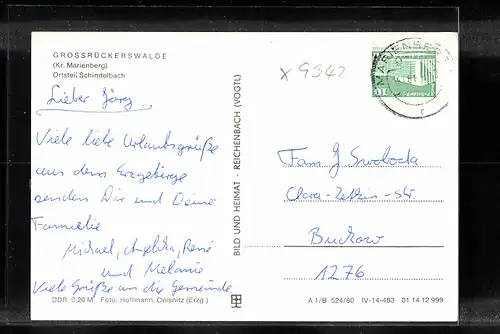 GROSSRÜCKERSWALDE
(Kr. Marienberg)
Ortsteil Schindelbach
Lieber Jörg
Viele liebe Urlaubsgrüße
aus dem Erzgebirge
senden Dir und Deine
Familie
Michael, Angelika, René
und Melanie
Viele Grüße an die Gemeinde
DDR 0,20 M Foto: Hoffmann, Oelsnitz (Erzg.)
BILD UND HEIMAT · REICHENBACH (VOGTL)
x 9342
MARIENBERG
10
Fam J Swoboda
Clara-Zetkin-Str
Buckow
1276
A 1/B 524/80 IV-14-483 01 14 12 999